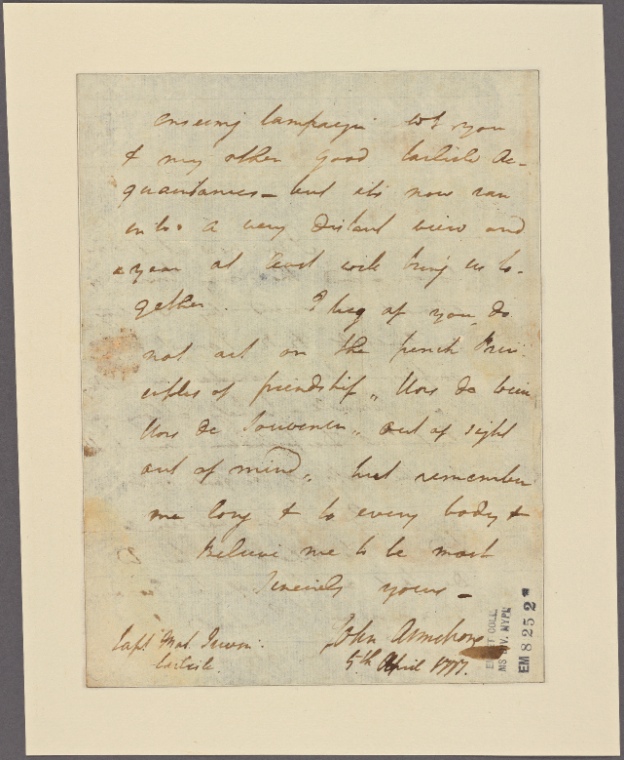 ensuing Campaign wt you
& my other good Carlisle Ac-
quaintances – but its now ran
into a very distant view and
a year at least will bring us to-
gether. I beg of you, do
not act on the french Prin-
ciples of friendship „ Hors de
Hors de Souvenir „ out of sight
out of mind „ but remember
me long & to every body &
believe me to be most
Sincerely yours –
John Armstrong
5th April 1777.
Capt Mat. Irwin.
Carlisle.
MS DIV. NYPL
EM 8252